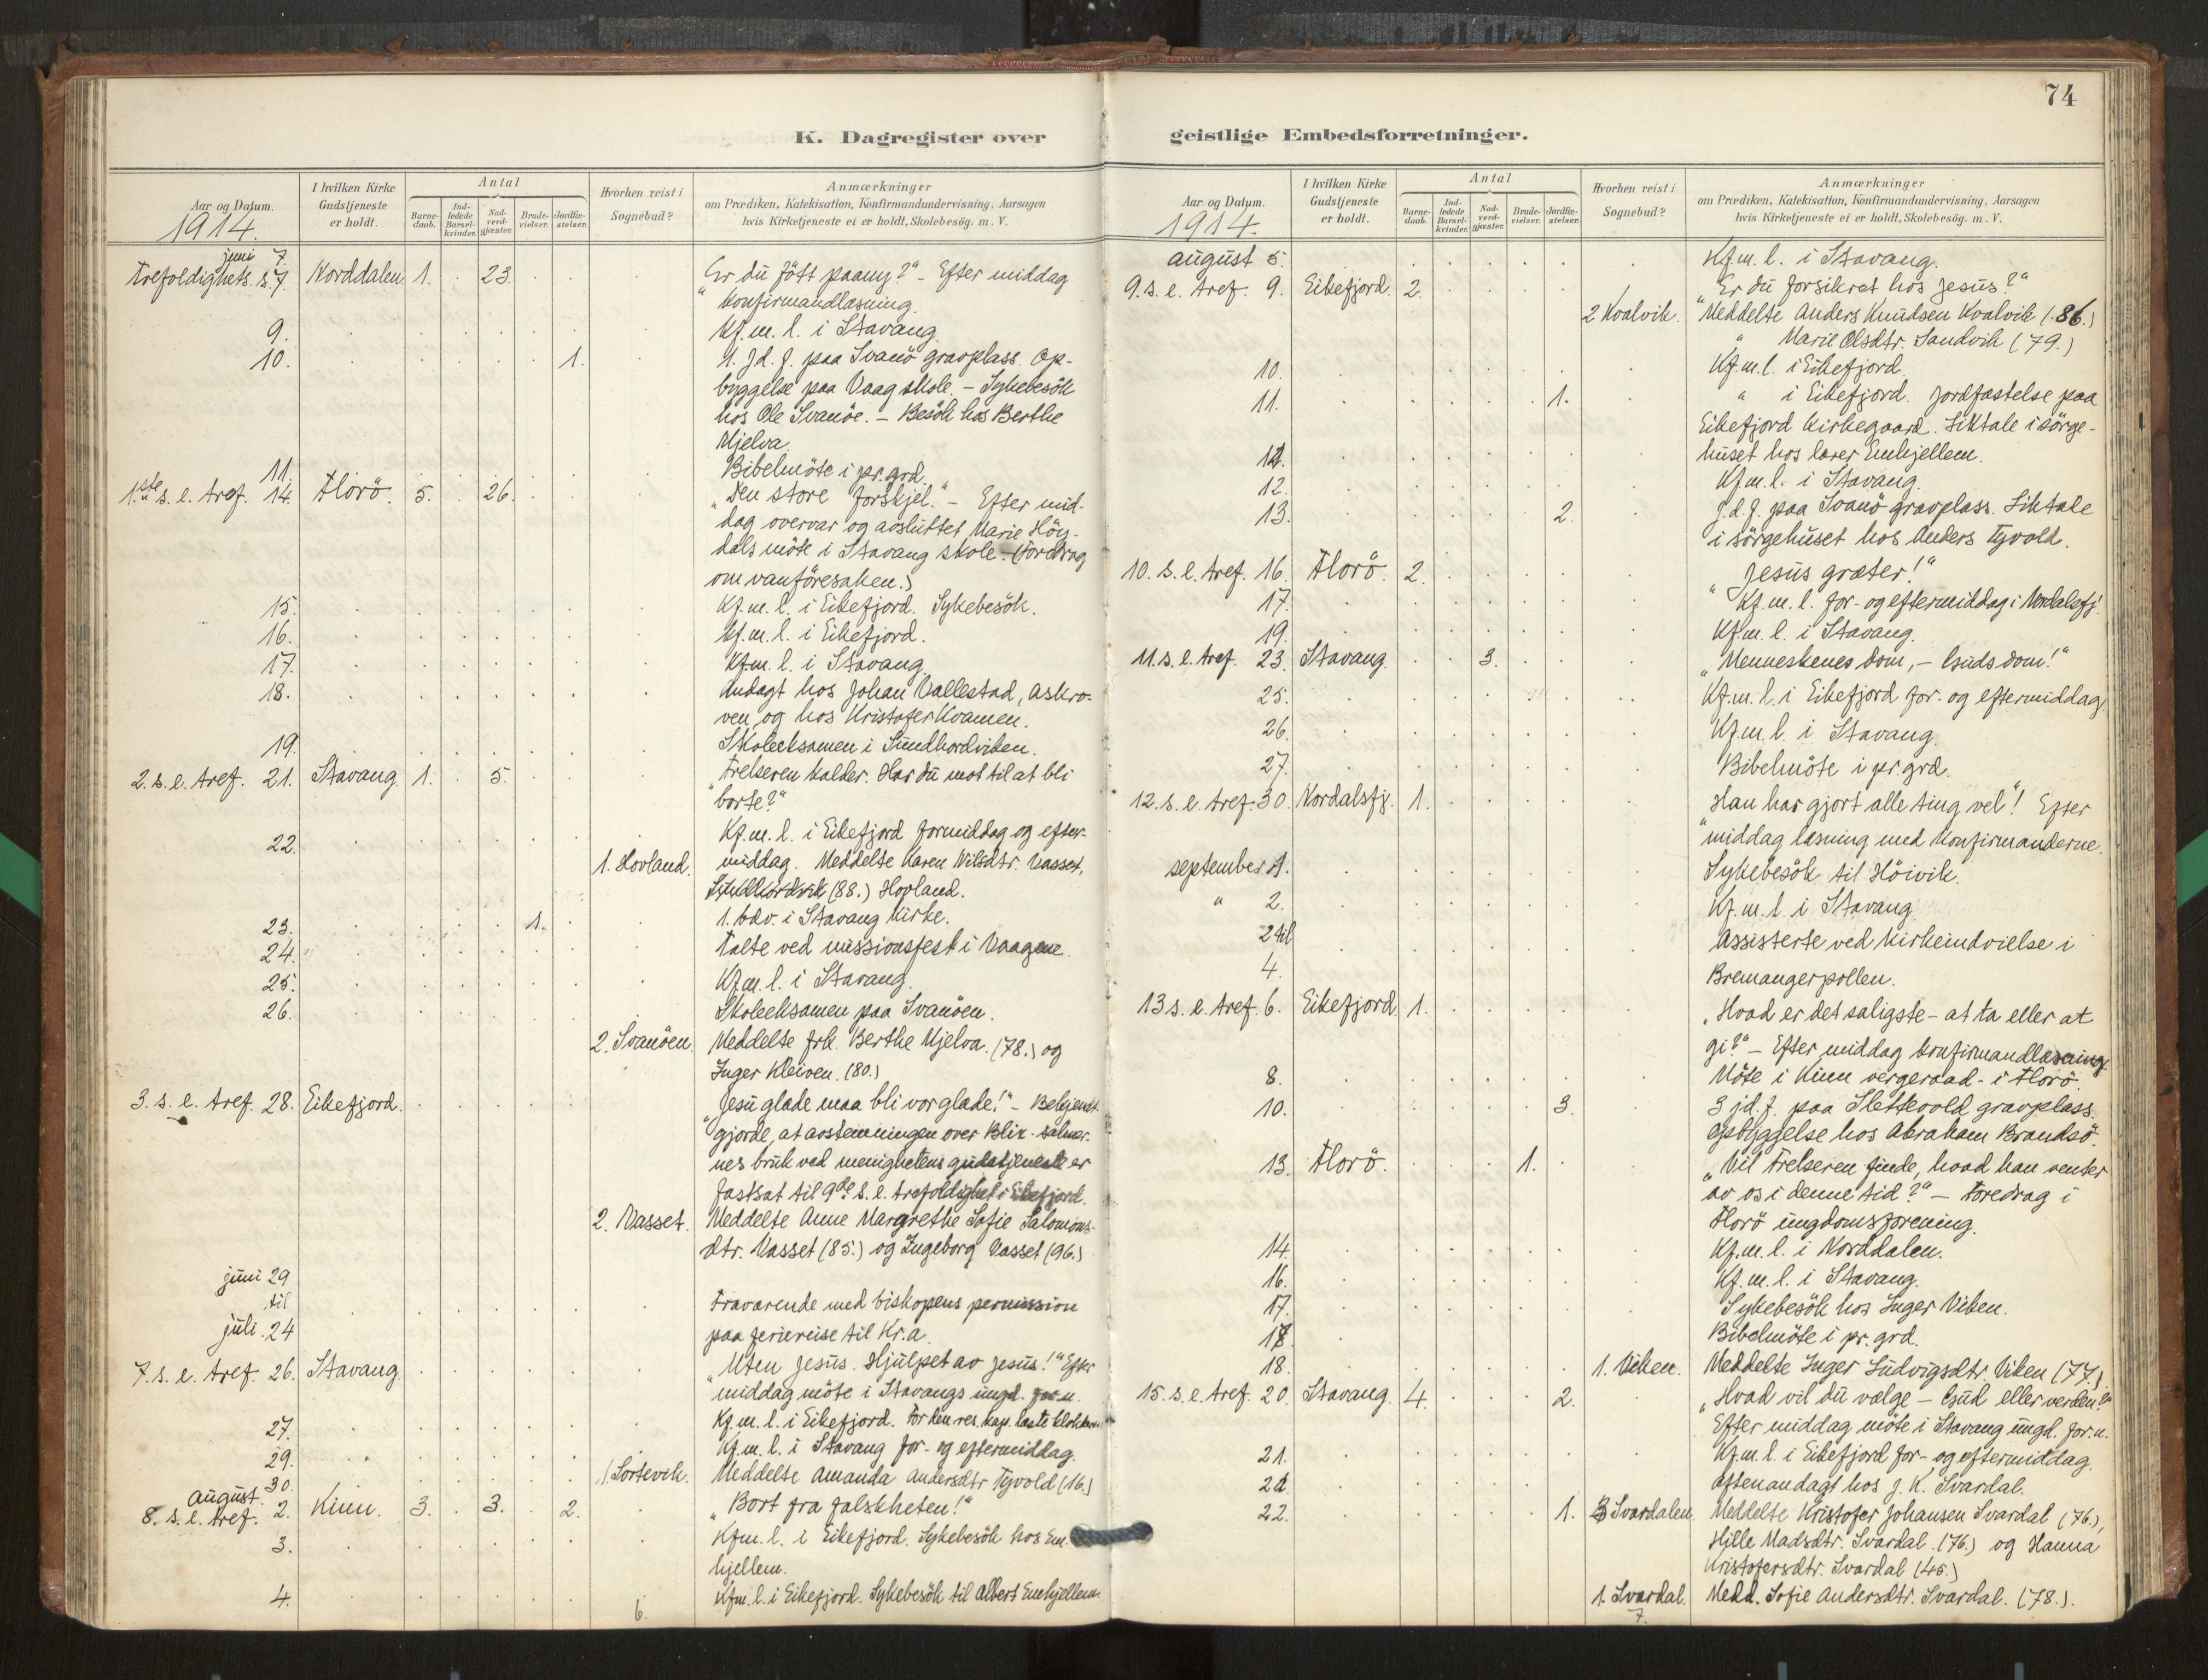 74
K. Dagregister over
Aar og Datum.
1914.
I hvilken Kirke
Gudstjeneste
er holdt.
Antal
Barne-
daab.
Ind-
ledede
Barsel-
kvinder.
Nad-
verd-
gjæster.
Brude-
vielser.
Jordfæ-
stelser.
Hvorhen reist i
Sognebud?
Anmærkninger
om Prædiken, Katekisation, Konfirmandundervisning, Aarsagen
hvis Kirketjeneste ei er holdt, Skolebesög. m. V.
juni 7.
Trefoldighets. s. 7. Norddalen. 1. 23. "Er du föt paany?" - Efter middag
konfirmandlæsning.
9. Kf. m. l. i Stavang.
10. 1. 1. jd. f. paa Svanö gravplass. Op-
byggelse paa Vaag skole. - Sykebesök
hos Ole Svanöe. - Besök hos Berthe
Mjelva.
11. Bibelmöte i pr. grd.
1ste s. e. tref. 14. Florö. 5. 26. "Den store forskjel." - Efter mid-
dag overvar og avsluttet Marie Höy-
dals möte i Stavang skole. (Foredrag
om vanföresaken.)
15. Kf. m. l. i Eikefjord. Sykebesök.
16. Kf. m. l. i Eikefjord.
17. Kf. m. l. i Stavang.
18. Andagt hos Johan Vallestad, Askro-
ven, og hos Kristofer Kvamen.
19. Skoleeksamen i Sundhordviken.
2. s. e. tref. 21. Stavang. 1. 5. "Frelseren kalder. Har du mot til at bli
borte?"
22. Kf. m. l. i Eikefjord formiddag og efter-
1. Hovland. middag. Meddelte Karen Nilsdtr. Vasset,
(88.) Hovland.
23. 1. 1. bdv. i Stavang kirke.
24. Talte ved missionsfest i Vaagene.
25. Kf. m. l. i Stavang.
26. Skoleeksamen paa Svanöen.
2. Svanöen. Meddelte frk. Berthe Mjelva. (78.) og
Inger Kleiven. (80.)
3. s. e. tref. 28. Eikefjord. "Jesu glade maa bli vor glade!" - Bekjendt-
gjorde, at avstemningen over Blix-salmer-
nes bruk ved menighetens gudstjeneste er
fastsat til 9de s. e. trefoldighet i Eikefjord.
2. Vasset. Meddelte Anne Margrethe Sofie Salomons-
dtr. Vasset (85.) og Ingeborg Vasset (96.)
juni 29
til Fraværende med biskopens permission
juli. 24 paa feriereise til Kr.a.
7. s. e. tref. 26. Stavang. "Uten Jesus. Hjulpet av Jesus!" Efter
middag möte i Stavangs ungd. for. n.
27. Kf. m. l. i Eikefjord. For den res. kap. læste klokkeren
29. Kf. m. l. i Stavang for- og eftermiddag.
30. 1. Sörtevik. Meddelte Amanda Andersdtr Tyvold (16.)
august.
8. s. e. tref. 2. Kinn. 3. 3. 2. "Bort fra falskheten!"
3. Kf. m. l. i Eikefjord. Sykebesök hos Em-
hjellem.
4. Kf. m. l. i Eikefjord. Sykebesök til Albert Emhjellem.
6.
geistlige Embedsforretninger.
Aar og Datum.
1914.
I hvilken Kirke
Gudstjeneste
er holdt.
Antal
Barne-
daab.
Ind-
ledede
Barsel-
kvinder.
Nad-
verd-
gjæster.
Brude-
vielser.
Jordfæ-
stelser.
Hvorhen reist i
Sognebud?
Anmærkninger
om Prædiken, Katekisation, Konfirmandundervisning, Aarsagen
hvis Kirketjeneste ei er holdt, Skolebesög. m. V.
august 5. Kf. m. l. i Stavang.
9. s. e. tref. 9. Eikefjord. 2. "Er du forsikret hos Jesus?"
2 Kvalvik. Meddelte Anders Knudsen Kvalvik (86.)
" Marie Olsdtr. Sandvik (79.)
10. Kf. m. l. i Eikefjord.
11. 1. " i Eikefjord. Jordfæstelse paa
Eikefjord kirkegaard. Liktale i sörge-
12. huset hos lærer Emhjellem.
12. Kf. m. l. i Stavang.
13. 2. J. d. f. paa Svanö gravplass. Liktale
i sörgehuset hos Anders Tyvold.
10. s. e. tref. 16. Florö. 2. "Jesus græter!"
17. Kf. m. l. for- og eftermiddag i Nordalsfj.
19. Kf. m. l. i Stavang.
11. s. e. tref. 23. Stavang. 3. "Menneskenes dom, - Guds dom!"
25. Kf. m. l. i Eikefjord for- og eftermiddag.
26. Kf. m. l. i Stavang.
27. Bibelmöte i pr. grd.
12. s. e. tref. 30. Nordalsfj. 1. "Han har gjort alle ting vel"! Efter
middag læsning med konfirmanderne.
september 1. Sykebesök til Höivik.
" 2. Kf. m. l. i Stavang.
2 til Assisterte ved kirkeindvielse i
4. Bremangerpollen.
13 s. e. tref. 6. Eikefjord 1. "Hvad er det saligste - at ta eller at
gi?" - Efter middag konfirmandlæsning.
8. Möte i Kinn vergeraad - i Florö.
10. 3. 3 jd. f. paa Slettevold gravplass.
Opbyggelse hos Abraham Brandsö.
13. Florö. 1. "Vil Frelseren finde, hvad han venter
av os i denne tid?" - Foredrag i
Florö ungdomsforening.
14. Kf. m. l. i Norddalen.
16. Kf. m. l. i Stavang.
17. Sykebesök hos Inger Viken.
18. Bibelmöte i pr. grd.
18. 1. Viken. Meddelte Inger Ludvigsdtr. Viken (77.)
15. s. e. tref. 20. Stavang. 4. 2. "Hvad vil du vælge - Gud eller verden?"
Efter middag möte i Stavang ungd. for. n.
21. Kf. m. l. i Eikefjord for- og eftermiddag.
22. Aftenandagt hos J. K. Svardal.
22. 1. 3 Svardalen. Meddelte Kristofer Johansen Svardal (76.),
Hille Madsdtr. Svardal. (76.) og Hanna
Kristofersdtr. Svardal (45.)
1. Svardal. Medd. Sofie Andersdtr. Svardal. (78.).
7.